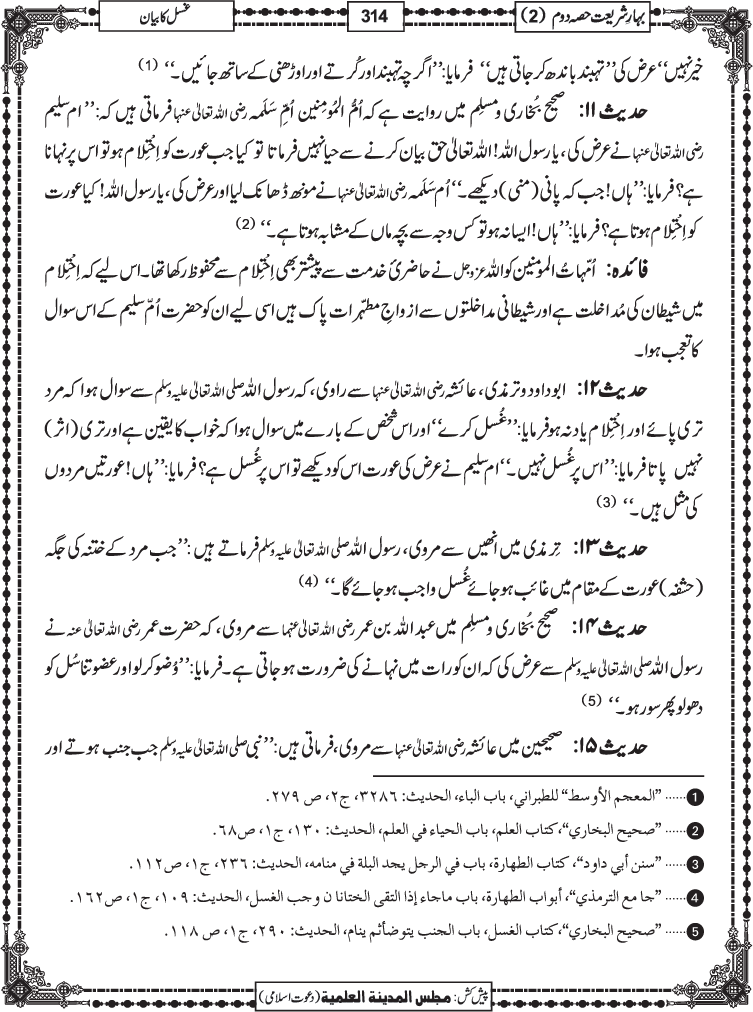 بہارِشریعت حصہ دوم (2)
314
غسل کا بیان
خَیر نہیں‘‘ عرض کی ’’تہبند باندھ کر جاتی ہیں‘‘ فرمایا: ’’اگرچہ تہبند اور کُرتے اور اوڑھنی کے ساتھ جائیں۔‘‘ (1)
حدیث ۱۱: صحیح بُخاری و مسلِم میں روایت ہے کہ اُمُّ المُومنین اُمِّ سَلَمہ رضی اللہ تعالیٰ عنہا فرماتی ہیں کہ: ’’ام سلیم
رضی اللہ تعالیٰ عنہا نے عرض کی، یا رسول اللہ! اللہ تعالیٰ حق بیان کرنے سے حیا نہیں فرماتا تو کیا جب عورت کو اِحْتِلام ہو تو اس پر نہانا
ہے؟ فرمایا: ’’ہاں! جب کہ پانی (منی) دیکھے۔‘‘ اُم سَلَمہ رضی اللہ تعالیٰ عنہا نے مونھ ڈھانک لیا اور عرض کی، یا رسول اللہ! کیا عورت
کو اِحْتِلام ہوتا ہے؟ فرمایا: ’’ہاں! ایسا نہ ہو تو کس وجہ سے بچہ ماں کے مشابہ ہوتا ہے۔‘‘ (2)
فائدہ: اُمّہاتُ المومنین کو اللہ عزوجل نے حاضریٔ خدمت سے پیشتر بھی اِحْتِلام سے محفوظ رکھا تھا۔ اس لیے کہ اِحْتِلام
میں شیطان کی مُداخلت ہے اور شیطانی مداخلتوں سے ازواجِ مطہّرات پاک ہیں اسی لیے ان کو حضرت اُمّ سلیم کے اس سوال
کا تعجب ہوا۔
حدیث ۱۲: ابو داود و ترمذی، عائشہ رضی اللہ تعالیٰ عنہا سے راوی، کہ رسول اللہ صلی اللہ تعالیٰ علیہ وسلم سے سوال ہوا کہ مرد
تری پائے اور اِحْتِلام یاد نہ ہو فرمایا: ’’غُسل کرے‘‘ اور اس شخص کے بارے میں سوال ہوا کہ خواب کا یقین ہے اور تری (اثر)
نہیں پاتا فرمایا: ’’اس پر غُسل نہیں۔‘‘ ام سلیم نے عرض کی عورت اس کو دیکھے تو اس پر غُسل ہے؟ فرمایا: ’’ہاں! عورتیں مردوں
کی مثل ہیں۔‘‘ (3)
حدیث ۱۳: تِرمذی میں انھیں سے مروی، رسول اللہ صلی اللہ تعالیٰ علیہ وسلم فرماتے ہیں: ’’جب مرد کے ختنہ کی جگہ
(حشفہ) عورت کے مقام میں غائب ہو جائے غُسل واجب ہو جائے گا۔‘‘ (4)
حدیث ۱۴: صحیح بُخاری و مسلِم میں عبداللہ بن عمر رضی اللہ تعالیٰ عنہا سے مروی، کہ حضرت عمر رضی اللہ تعالیٰ عنہ نے
رسول اللہ صلی اللہ تعالیٰ علیہ وسلم سے عرض کی کہ ان کو رات میں نہانے کی ضرورت ہو جاتی ہے۔ فرمایا: ’’وُضو کر لو اور عضو تناسُل کو
دھو لو پھر سو رہو۔‘‘ (5)
حدیث ۱۵: صحیحین میں عائشہ رضی اللہ تعالیٰ عنہا سے مروی، فرماتی ہیں: ’’نبی صلی اللہ تعالیٰ علیہ وسلم جب جنب ہوتے اور
1 ...... ’’المعجم الأوسط‘‘ للطبراني، باب الباء، الحديث: ۳۲۸٦، ج۲، ص ۲۷۹.
2 ...... ’’صحيح البخاري‘‘، كتاب العلم، باب الحياء في العلم، الحديث: ۱۳۰، ج۱، ص٦۸.
3 ...... ’’سنن أبي داود‘‘، كتاب الطهارة، باب في الرجل يجد البلة في منامه، الحديث: ۲۳٦، ج۱، ص۱۱۲.
4 ...... ’’جامع الترمذي‘‘، أبواب الطهارة، باب ماجاء إذا التقى الختانان وجب الغسل، الحديث: ۱۰۹، ج۱، ص۱٦۲.
5 ...... ’’صحيح البخاري‘‘، كتاب الغسل، باب الجنب يتوضأثم ينام، الحديث: ۲۹۰، ج۱، ص ۱۱۸.
پیش کش: مجلس المدینۃ العلمیۃ (دعوت اسلامی)